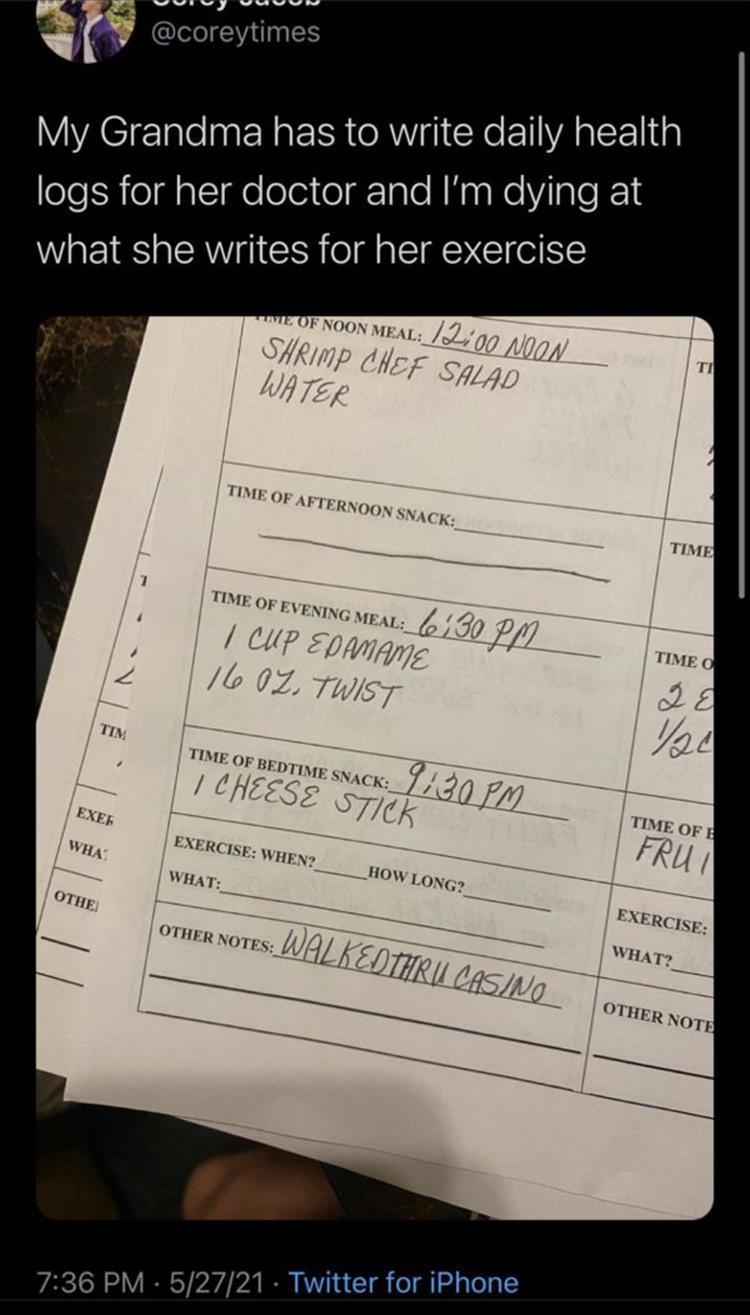 @coreytimes
My Grandma has to write daily health
logs for her doctor and I'm dying at
what she writes for her exercise
TIME OF NOON MEAL: 12:00 NOON
SHRIMP CHEF SALAD
WATER
TIME OF AFTERNOON SNACK:
TIME OF EVENING MEAL: 6:30 PM
1 CUP EDAMAME
16 OZ. TWIST
TIME OF BEDTIME SNACK: 9:30 PM
1 CHEESE STICK
EXERCISE: WHEN? HOW LONG?
WHAT:
OTHER NOTES: WALKED THRU CASINO
TI
TIME
TIME O
2 E
1/2 C
TIME OF B
FRUI
EXERCISE:
WHAT?
OTHER NOTE
TIM
EXER
WHA
OTHE
7:36 PM · 5/27/21 · Twitter for iPhone